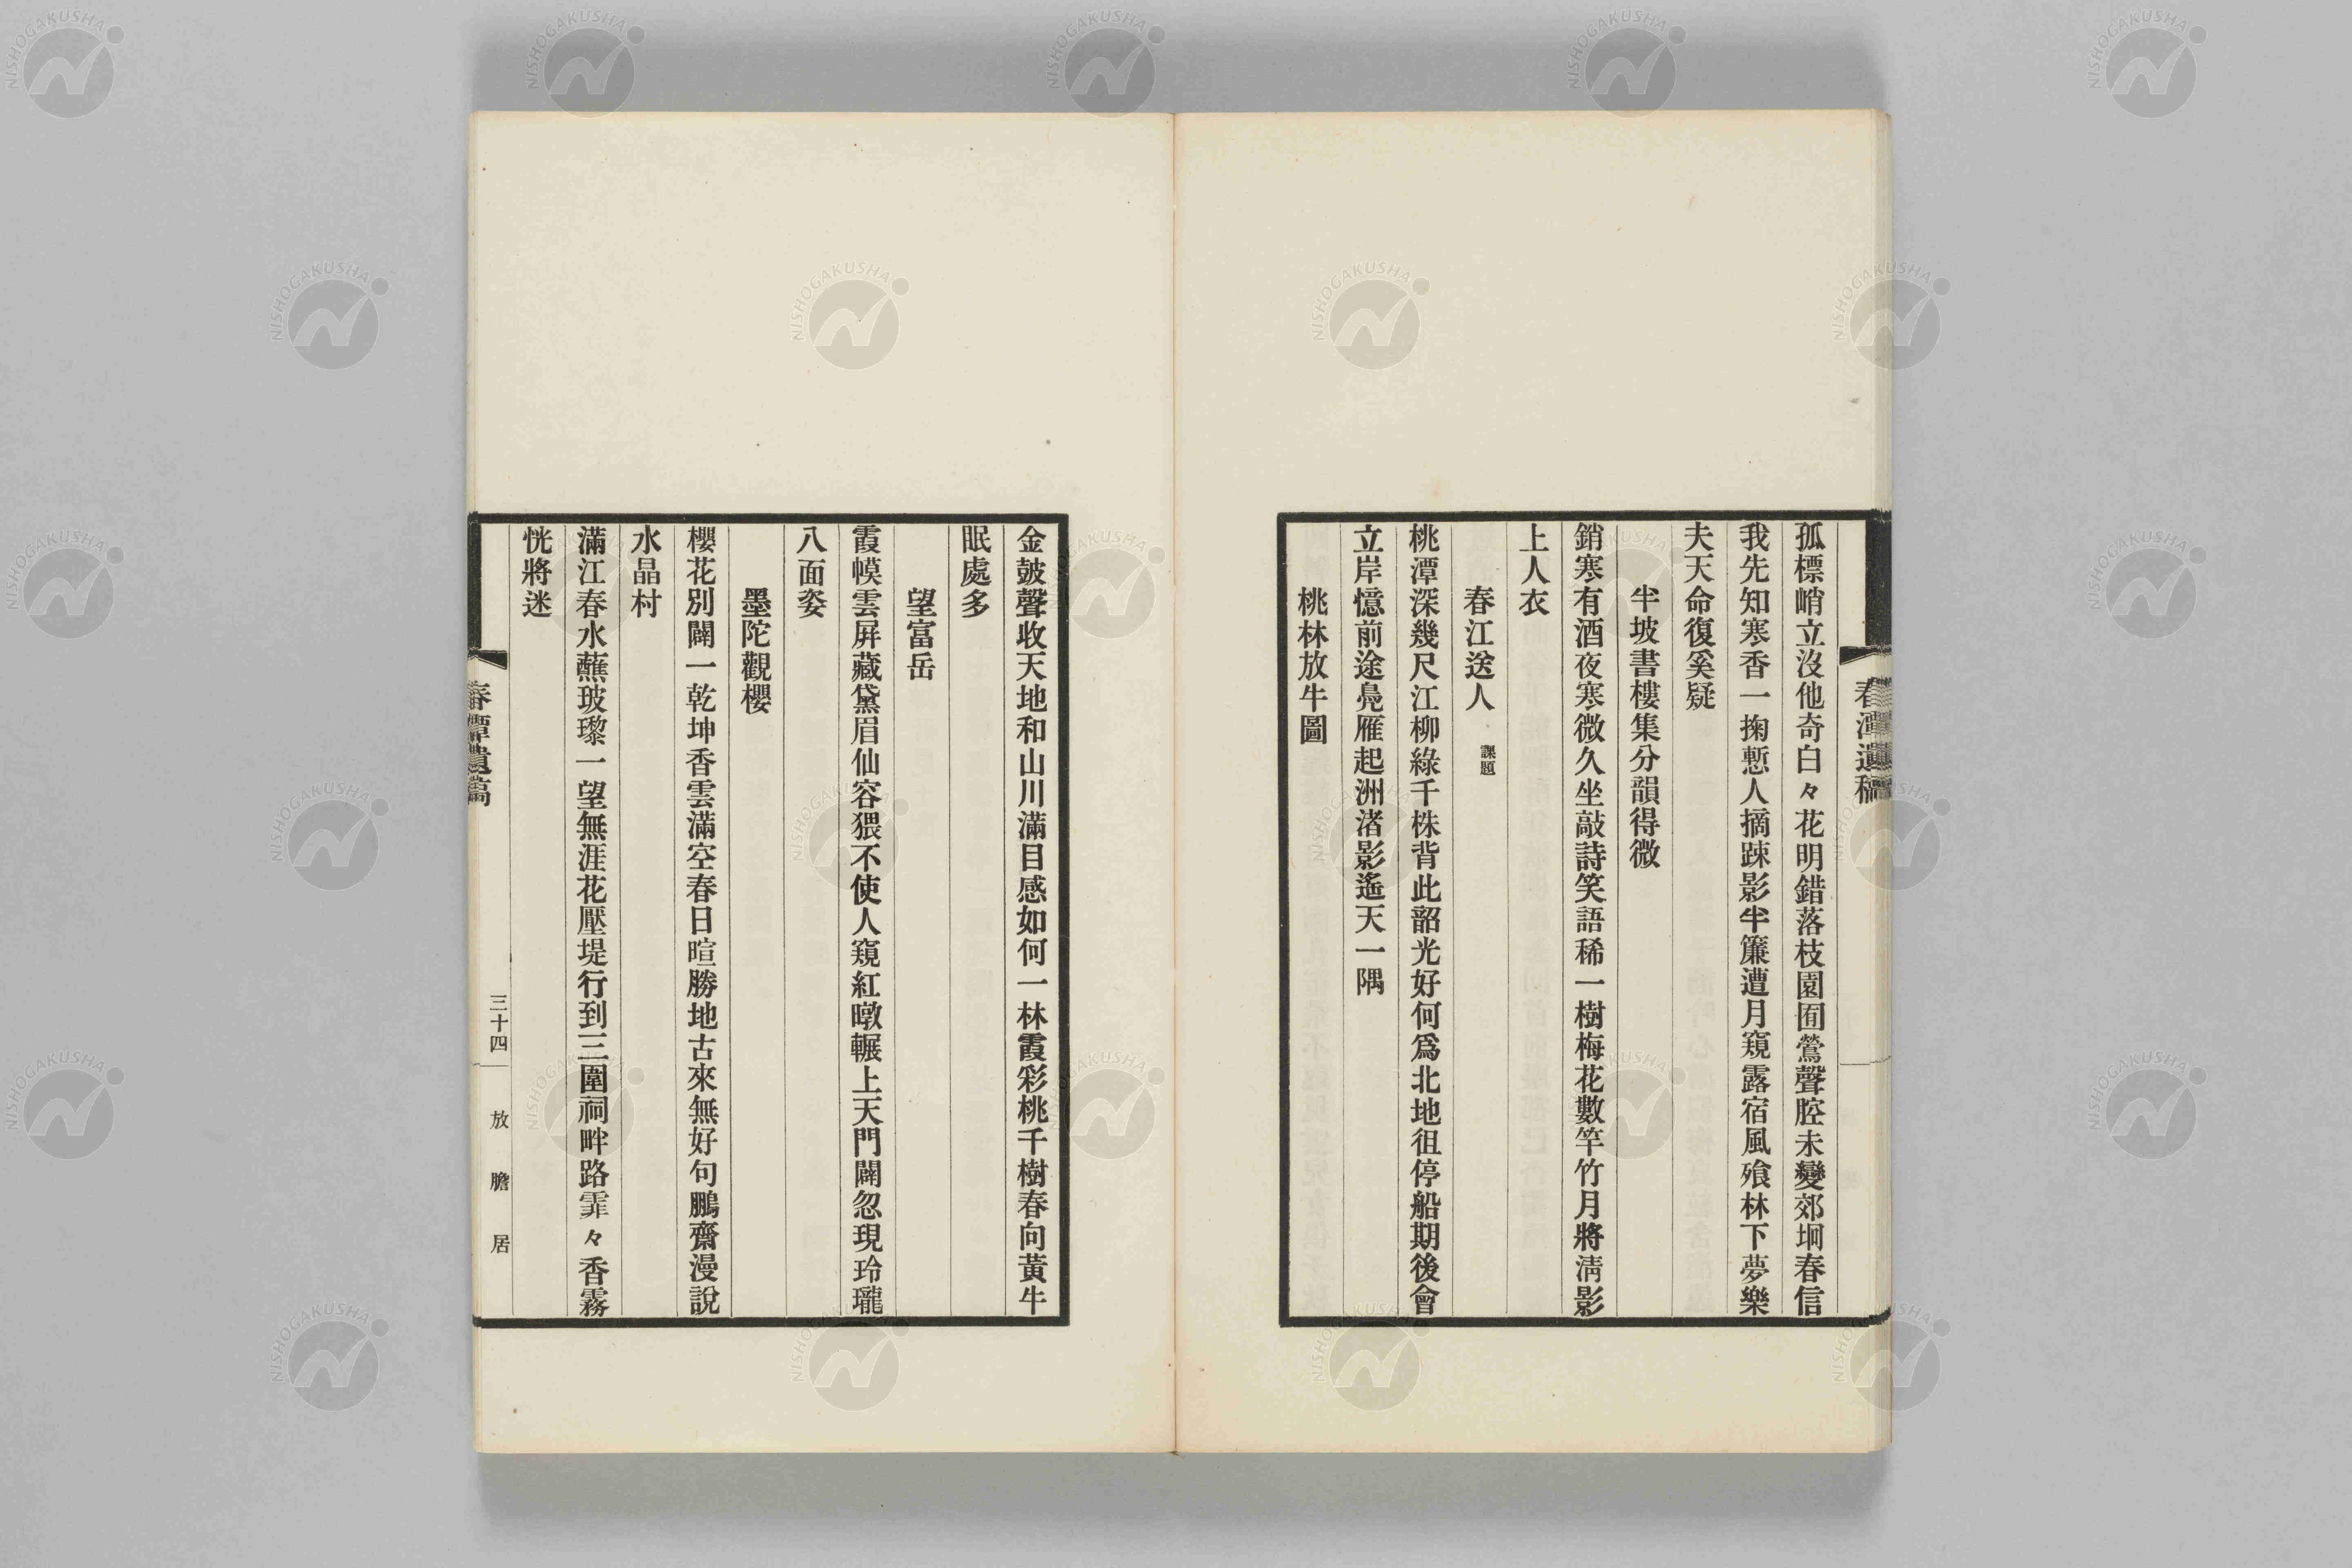 春潭遺稿
孤標峭立沒他奇白々花明錯落枝園囿鶯聲腔未變郊坰春信
我先知寒香一掬慙人摘踈影半簾遭月窺露宿風飱林下夢樂
夫天命復奚疑
半坡書樓集分韻得微
銷寒有酒夜寒微久坐敲詩笑語稀一樹梅花數竿竹月將淸影
上人衣
春江送人 課題
桃潭深幾尺江柳綠千株背此韶光好何爲北地徂停船期後會
立岸憶前途鳧雁起洲渚影遙天一隅
桃林放牛圖
金皷聲收天地和山川滿目感如何一林霞彩桃千樹春向黃牛
眠處多
望富岳
霞幙雲屛藏黛眉仙容猥不使人窺紅暾輾上天門闢忽現玲瓏
八面姿
墨陀觀櫻
櫻花別闢一乾坤香雲滿空春日暄勝地古來無好句鵬齋漫說
水晶村
滿江春水蘸玻瓈一望無涯花壓堤行到三圍祠畔路霏々香霧
恍將迷
春潭遺稿
三十四
放膽居
NISHOGAKUSHA